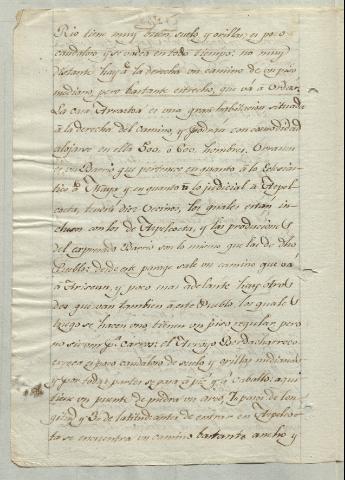 Rio tiene muy buen suelo y orillas, es poco
caudaloso y se vadea en todo tiempo: no muy
distante hay á la derecha un camino de un piso
mediano, pero bastante estrecho, que vá á Ordoz.
La casa Arvastoa es una gran habitacion situada
á la derecha del camino, y podrá con comodidad
alojarse en ella 500. ó 600. hombres. Urrasun
es un Barrio que pertenece en quanto á lo Eclesias-
tico á Maya y en quanto á lo judicial á Azpil-
cueta, tendrá diez Vecinos, los quales están in-
clusos con los de Azpilcueta, y las producciones
del expresado Barrio son lo mismo que las de dho
Pueblo: desde este parage sale un camino que vá
á Arizcun, y poco mas adelante hay otros
dos que van tambien á este Pueblo, los quales
luego se hacen uno, tienen un piso regular pero
no sirven pª carros: el Arroyo Bordacharreco-
erreca es poco caudaloso de suelo y orillas medianas
y por todas partes se pasa á pie y á Caballo, aqui
tiene un puente de piedra un arco, 7. pasos de lon-
gitud y 3. de latitud: antes de entrar en Azpilcue-
ta se encuentra un camino bastante ancho y